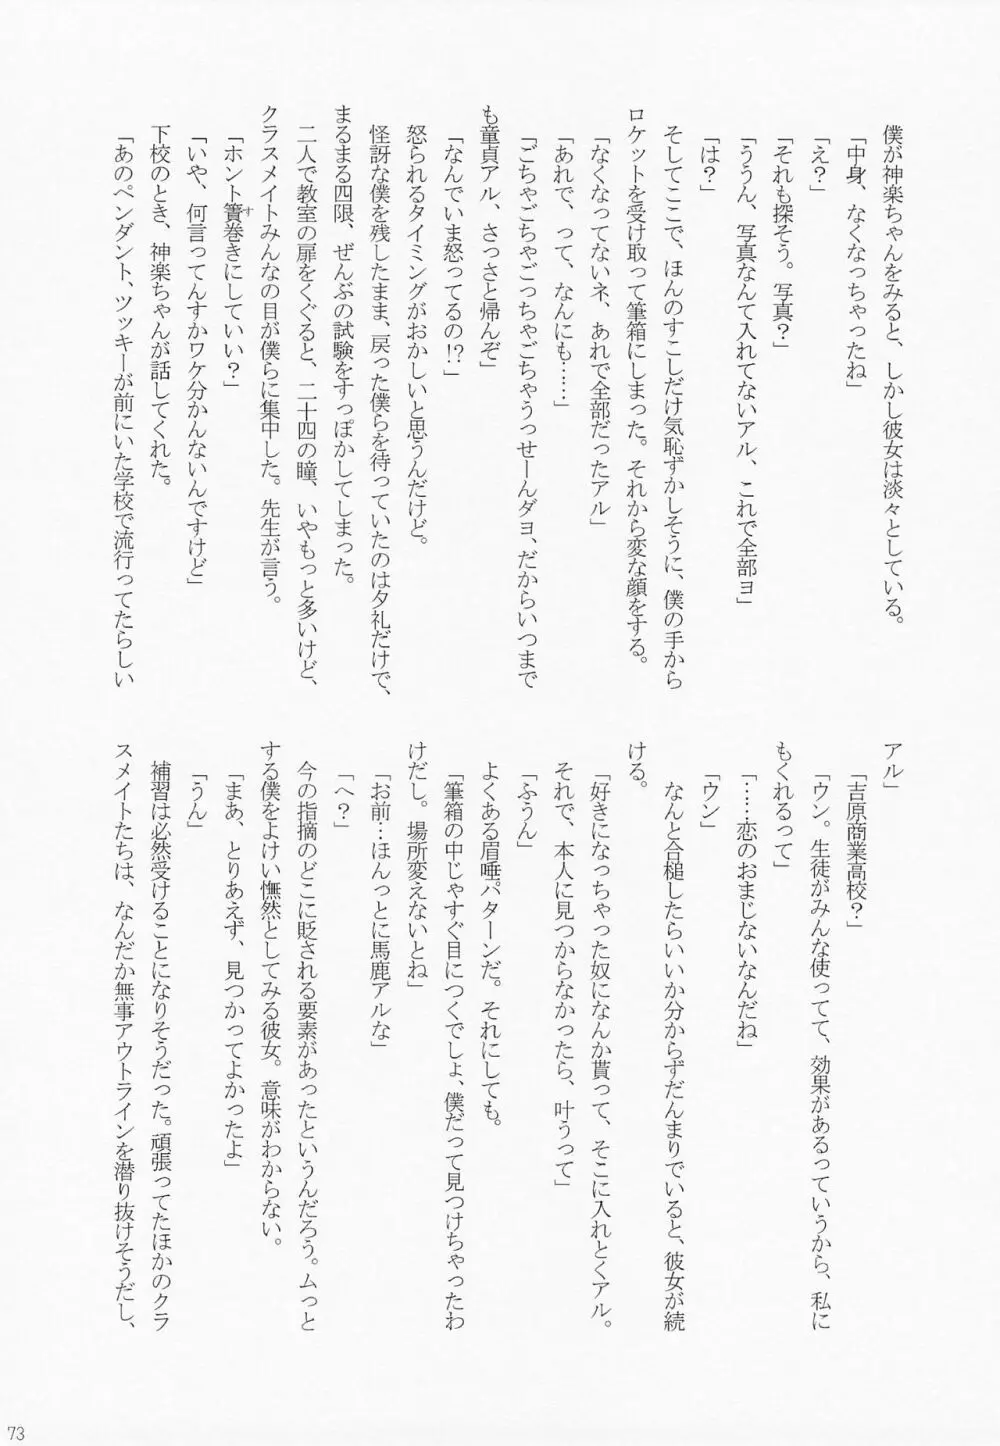 僕が神楽ちゃんをみると、しかし彼女は淡々としている。
「中身、なくなっちゃったね」
「え？」
「それも探そう。写真？」
「ううん、写真なんて入れてないアル、これで全部ヨ」
「は？」
そしてここで、ほんのすこしだけ気恥ずかしそうに、僕の手から
ロケットを受け取って筆箱にしまった。それから変な顔をする。
「なくなってないネ、あれで全部だったアル」
「あれで、って、なんにも……」
「ごちゃごちゃごっちゃごちゃうっせーんダヨ、だからいつまで
も童貞アル、さっさと帰んぞ」
「なんでいま怒ってるの!?」
怒られるタイミングがおかしいと思うんだけど。
怪訝な僕を残したまま、戻った僕らを待っていたのは夕礼だけで、
まるまる四限、ぜんぶの試験をすっぽかしてしまった。
二人で教室の扉をくぐると、二十四の瞳、いやもっと多いけど、
クラスメイトみんなの目が僕らに集中した。先生が言う。
「ホント簀巻きにしていい？」
「いや、何言ってんすかワケ分かんないんですけど」
下校のとき、神楽ちゃんが話してくれた。
「あのペンダント、ツッキーが前にいた学校で流行ってたらしい
アル」
「吉原商業高校？」
「ウン。生徒がみんな使ってて、効果があるっていうから、私に
もくれるって」
「……恋のおまじないなんだね」
「ウン」
なんと合槌したらいいか分からずだんまりでいると、彼女が続
ける。
「好きになっちゃった奴になんか貰って、そこに入れとくアル。
それで、本人に見つからなかったら、叶うって」
「ふうん」
よくある眉唾パターンだ。それにしても。
「筆箱の中じゃすぐ目につくでしょ、僕だって見つけちゃったわ
けだし。場所変えないとね」
「お前…ほんっとに馬鹿アルな」
「へ？」
今の指摘のどこに貶される要素があったというんだろう。ムっと
する僕をよけい憮然としてみる彼女。意味がわからない。
「まあ、とりあえず、見つかってよかったよ」
「うん」
補習は必然受けることになりそうだった。頑張ってたほかのクラ
スメイトたちは、なんだか無事アウトラインを潜り抜けそうだし、
73